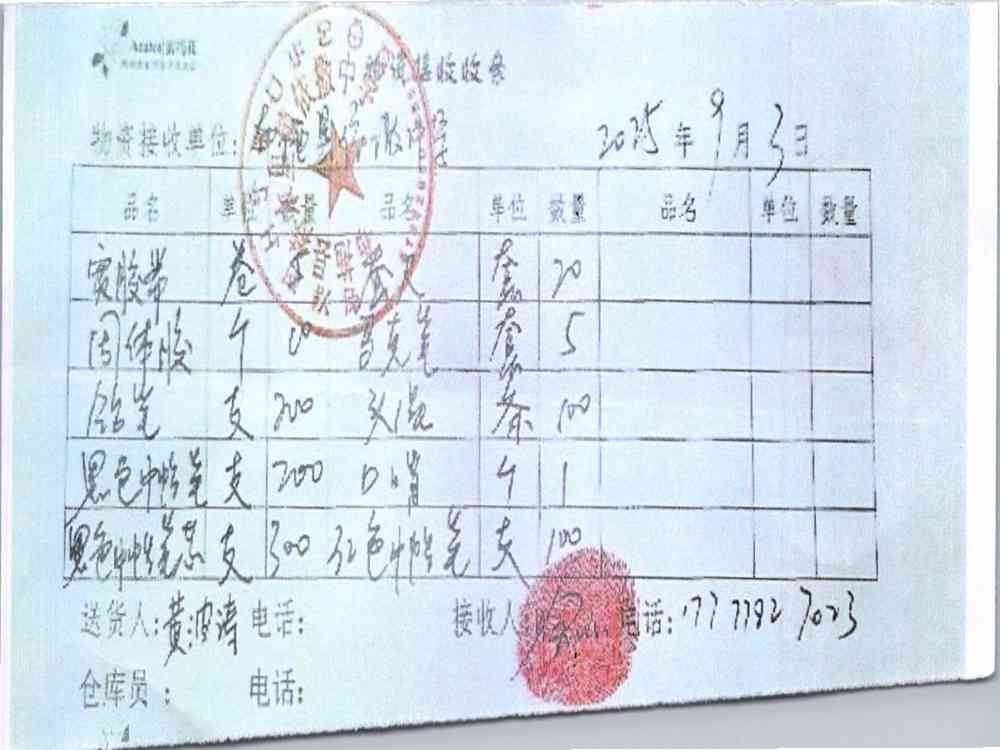 Azalea
物资接收收条
物资接收单位: 2025年9月3日
品名 单位 数量 品名 单位 数量 品名 单位 数量
宽胶带 卷 套尺 套 20
固体胶 个 10 马克笔 套 5
铅笔 支 200 头绳 条 100
黑色中性笔 支 200 口哨 个 1
黑色中性笔芯 支 300 红色中性笔 支 100
送货人:黄波涛 电话: 接收人: 电话:17777927023
仓库员: 电话: